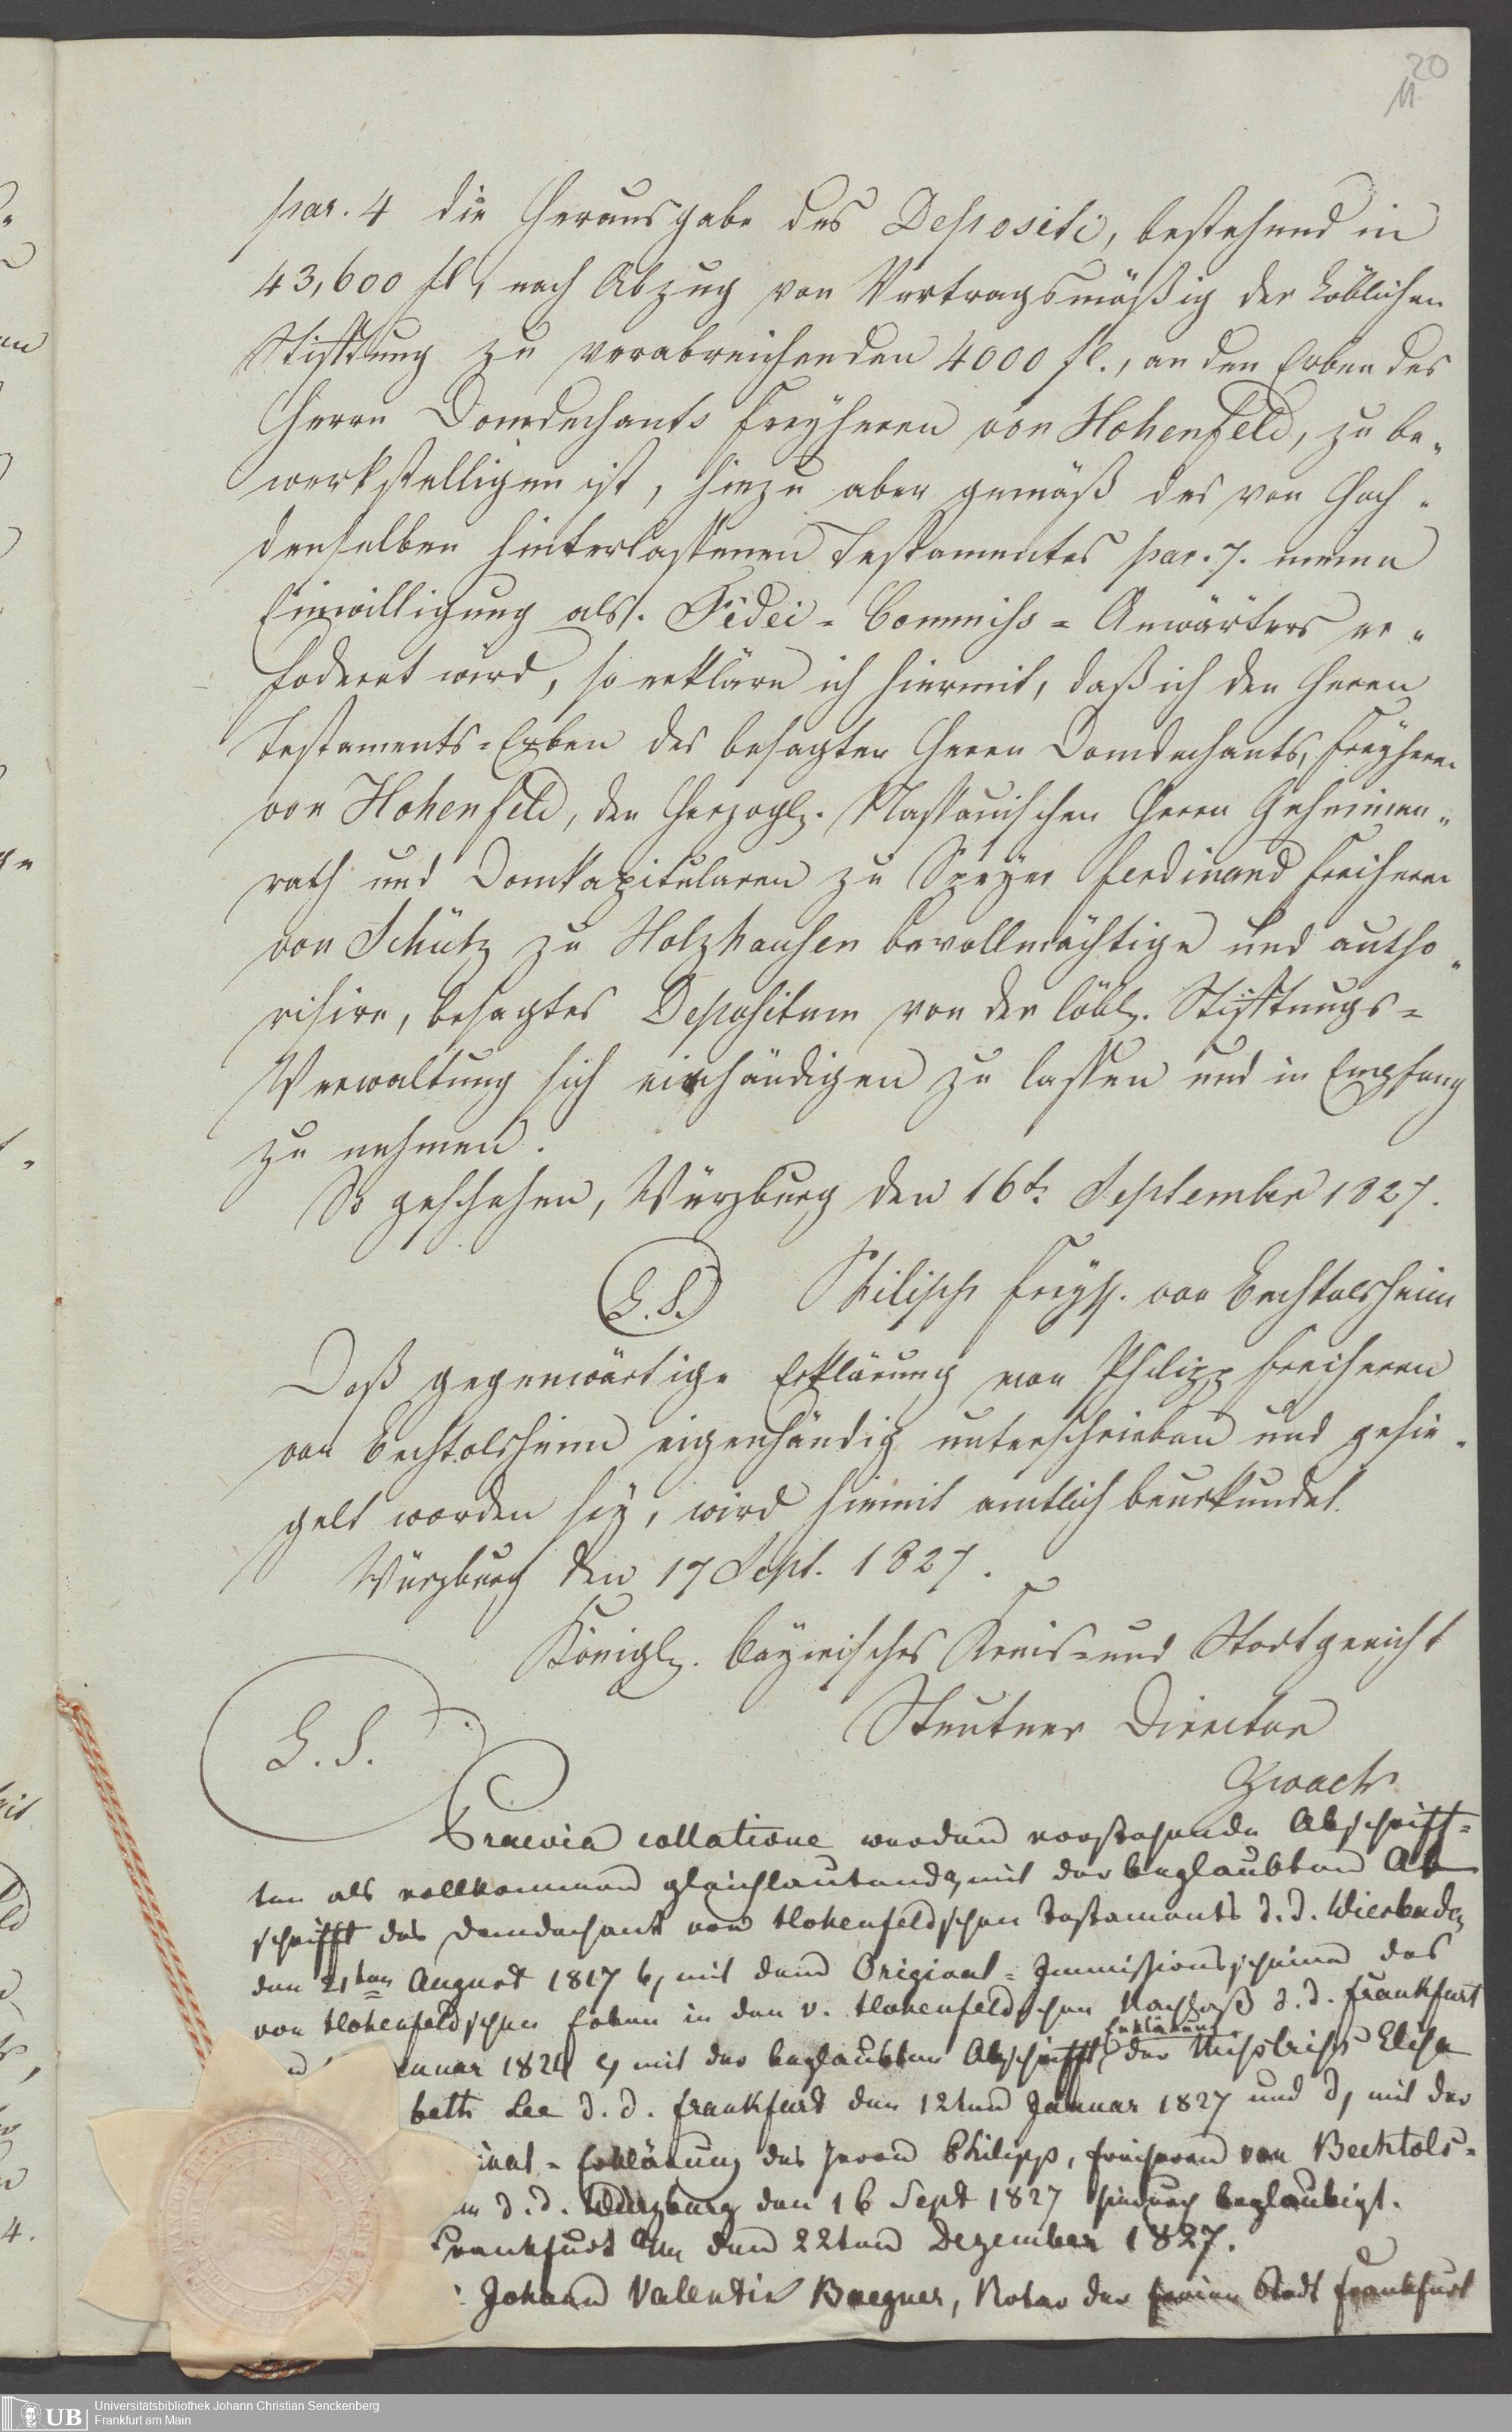 20
11.
par. 4 die Herausgabe des Depositi, bestehend in
43,600 fl, nach Abzug von Vertragsmäßig der Löblichen
Stiftung zu verabreichenden 4000 fl., an den Erben des
Herrn Domdechants Freyherrn von Hohenfeld, zu be„
werkstelligen ist, hiezu aber gemäß des von Hoch„
denselben hinterlassenen Testamentes par. 7. meine
Einwilligung als Fidei-Commiss-Anwärters er„
fodert wird, so erkläre ich hiermit, daß ich den Herrn
Testaments-Erben des besagten Herrn Domdechants, Freyherrn
von Hohenfeld, den Herzogl. Nassauischen Herrn Geheimen„
rath und Domkapitularen zu Speyer Ferdinand Freiherrn
von Schütz zu Holzhausen bevollmächtige und autho„
risire, besagtes Depositum von der löbl. Stiftungs-
Verwaltung sich einhändigen zu lassen und in Empfang
zu nehmen.
So geschehen, Würzburg den 16t. September 1827.
L.S. Philipp Freyh. von Bechtolsheim
Daß gegenwärtige Erklärung von Philipp Freiherrn
von Bechtolsheim eigenhändig unterschrieben und gesie„
gelt worden sey, wird hiemit amtlich beurkundet.
Würzburg den 17 Sept. 1827.
Königl. Bayerisches Kreis- und Stadtgericht
L.S. Director
Praevia collatione werden vorstehende Abschrift-
ten als vollkommen gleichlautend a, mit der beglaubten Ab
schrifft des Domdechant von Hohenfeldschen Testaments d.d. Wiesbaden
den 21ten August 1817 b, mit dem Original-Immissionsscheine des
von Hohenfeldschen Erben in den v. Hohenfeldschen Nachlaß d.d. Frankfurt
Erklärung
nuar 1824 c, mit der beglaubten Abschrifft der Elisa
beth Lee d.d. Frankfurt den 12ten Januar 1827 und d, mit der
inal-Erklärung des Herrn Philipp, Freiherrn von Bechtols-
m d.d. Würzburg den 16 Sept 1827 hiedurch beglaubigt.
Frankfurt a/m den 22ten Dezember 1827.
Johann Valentin Buegner, Notar der freien Stadt Frankfurt
UB Universitätsbibliothek Johann Christian Senckenberg
Frankfurt am Main